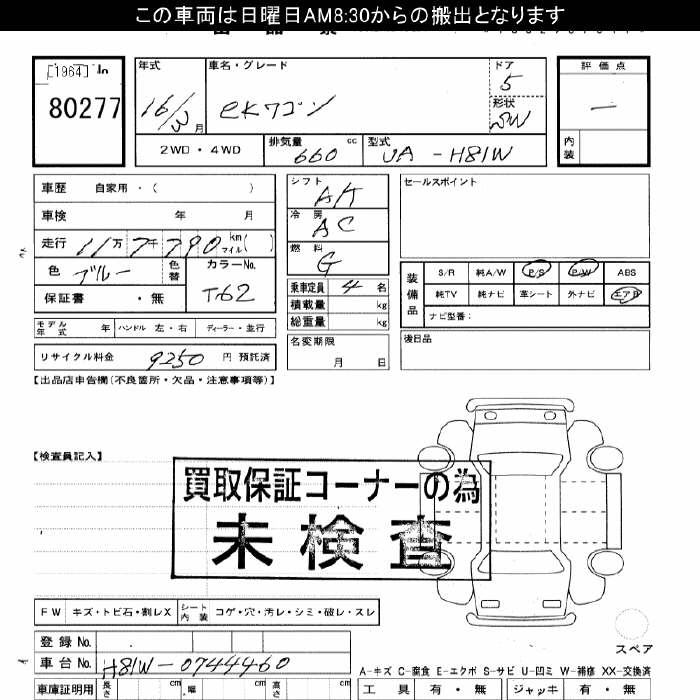 この車両は日曜日AM8:30からの搬出となります
[1964] 10
80277
年式
16/3月
車名・グレード
eKワゴン
ドア
5
形状
SW
評価点
―
内装
2WD・4WD
排気量 660 cc
型式 UA-H81W
車歴 自家用・( )
車検 年 月
走行 11万7千790 km マイル( )
色 ブルー 色替 カラーNo. T62
保証書 ・無
モデル年式 年 ハンドル 左・右 ディーラー・並行
リサイクル料金 9250 円 預託済
シフト AT
冷房 AC
燃料 G
乗車定員 4 名
積載量 kg
総重量 kg
名変期限
月 日
セールスポイント
装備品
S/R 純A/W P/S P/W ABS
純TV 純ナビ 革シート 外ナビ エアB
ナビ型番:
後日品
【出品店申告欄(不良箇所・欠品・注意事項等)】
【検査員記入】
買取保証コーナーの為
未検査
FW キズ・トビ石・割レX シート内装 コゲ・穴・汚レ・シミ・破レ・スレ
スペア
登録No.
車台No. H81W-0744460
A-キズ C-腐食 E-エクボ S-サビ U-凹ミ W-補修 XX-交換済
車庫証明用 長さ cm 幅 cm cm
工具 有・無 ジャッキ 有・無